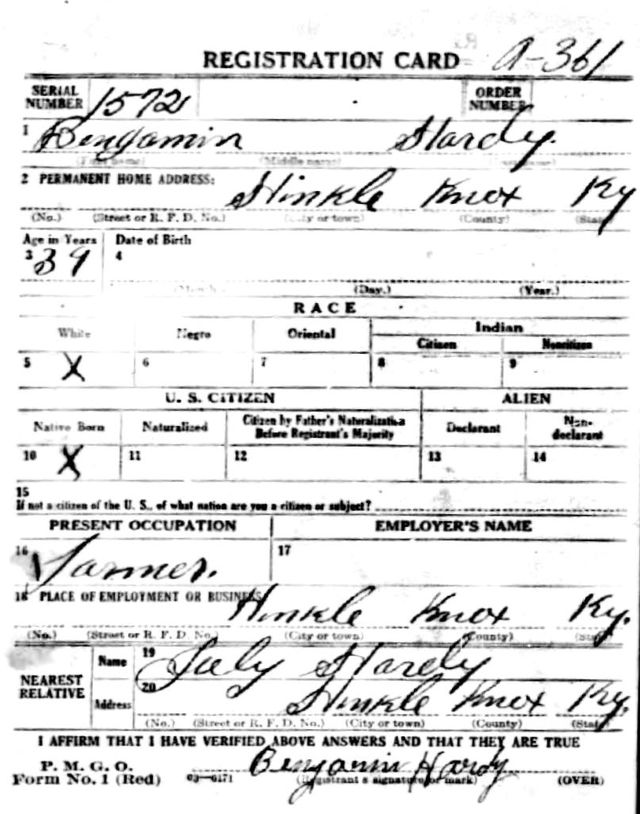 REGISTRATION CARD A-361
SERIAL NUMBER 1572 ORDER NUMBER
1 Benjamin Hardy
(First name) (Middle name)
2 PERMANENT HOME ADDRESS: Hinkle Knox Ky
(No.) (Street or R. F. D. No.) (City or town) (County) (State)
Age in Years Date of Birth
3 39 4
(Month.) (Day.) (Year.)
RACE
White Negro Oriental Indian
Citizen Noncitizen
5 X 6 7 8 9
U. S. CITIZEN ALIEN
Native Born Naturalized Citizen by Father's Naturalization Before Registrant's Majority Declarant Non-declarant
10 X 11 12 13 14
15
If not a citizen of the U. S., of what nation are you a citizen or subject?
PRESENT OCCUPATION EMPLOYER'S NAME
16 Farmer. 17
18 PLACE OF EMPLOYMENT OR BUSINESS: Hinkle Knox Ky.
(No.) (Street or R. F. D. No.) (City or town) (County) (State)
NEAREST RELATIVE Name 19 Hardy
Address 20 Hinkle Knox Ky.
(No.) (Street or R. F. D. No.) (City or town) (County) (State)
I AFFIRM THAT I HAVE VERIFIED ABOVE ANSWERS AND THAT THEY ARE TRUE
P. M. G. O.
Form No. 1 (Red) 03—6171 Benjamin Hardy
(Registrant's signature or mark) (OVER)